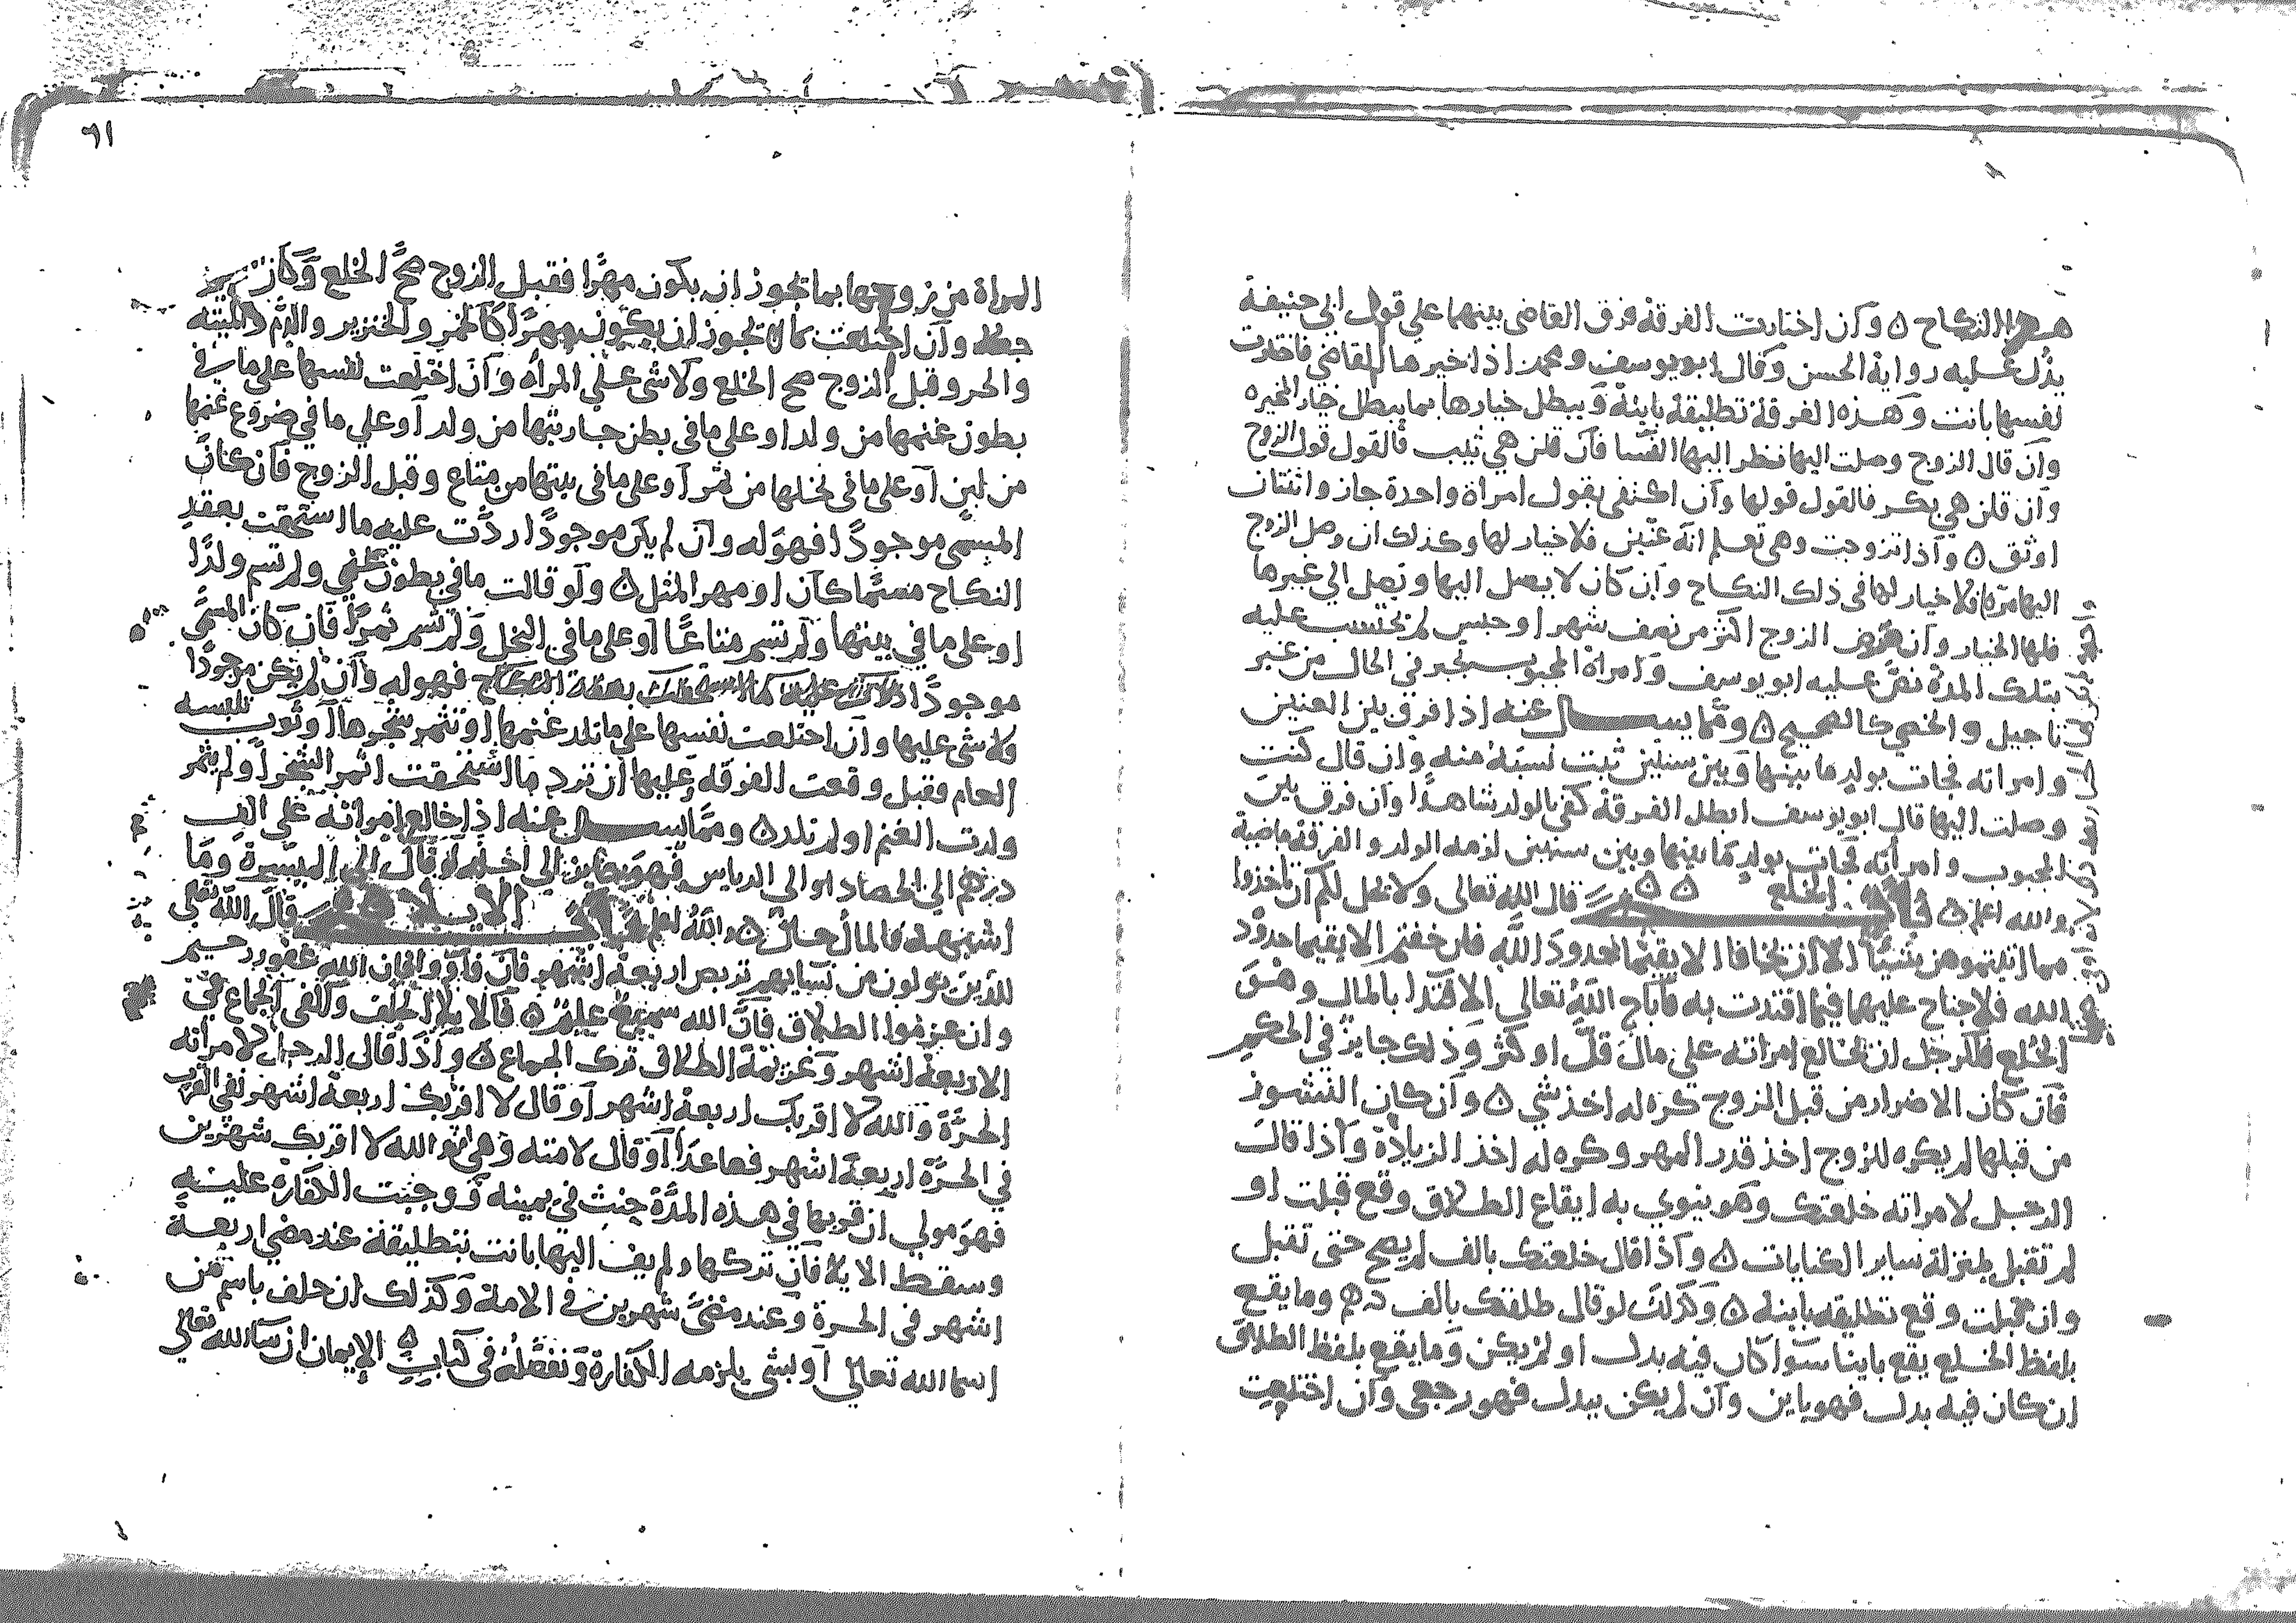 هذا النكاح ه وان اختارت الفرقة فرق القاضي بينهما علي قول ابي حنيفة
يدل عليه رواية الحسن وقال ابو يوسف ومحمد اذا خيرها القاضي فاختارت
نفسها بانت وهذه الفرقة تطليقة باينة ويبطل خيارها بما يبطل خيار المخيره
وان قال الزوج وصلت اليها نظر اليها النسا فان قلن هي ثيب فالقول قول الزوج
وان قلن هي بكر فالقول قولها وان اكتفى بقول امراة واحدة جاز واثنتان
اوثق ه واذا تزوجت وهي تعلم انه عنين فلا خيار لها وكذلك ان وصل الزوج
اليها مرة فلا خيار لها في ذلك النكاح وان كان لا يصل اليها ويصل الي غيرها
فلها الخيار وان مرض الزوج اكثر من نصف شهر او حبس لم يحتسب عليه
بتلك المدة نص عليه ابو يوسف وامراة المجبوب تخير في الحال من غير
تاجيل والخصي كالصحيح ه ومما يسال عنه اذا فرق بين العنين
وامراته فجات بولد ما بينها وبين سنتين ثبت نسبه منه وان قال كنت
وصلت اليها قال ابو يوسف ابطل الفرقة كفى بالولد شاهدا وان فرق بين
المجبوب وامراته فجات بولد ما بينها وبين سنتين لزمه الولد والفرقة ماضية
والله اعلم ه باب الخلع ه ه قال الله تعالى ولا يحل لكم ان تاخذوا
مما اتيتموهن شيئا الا ان يخافا الا يقيما حدود الله فان خفتم الا يقيما حدود
الله فلا جناح عليهما فيما افتدت به فاباح الله تعالي الافتدا بالمال وهو
الخلع فللرجل ان يخالع امراته على مال قل او كثر وذلك جايز في الحكم
فان كان الاضرار من قبل الزوج كره له اخذ شي ه وان كان النشوز
من قبلها لم يكره للزوج اخذ قدر المهر وكره له اخذ الزيادة واذا قال
الرجل لامراته خلعتك وهو ينوي به ايقاع الطلاق وقع قبلت او
لم تقبل بمنزلة ساير الكنايات ه واذا قال خلعتك بالف لم يصح حتى تقبل
وان قبلت وقع تطليقه باينة ه وكذلك لو قال طلقتك بالف درهم وما يقع
بلفظ الخلع يقع باينا سوا كان فيه بدل او لم يكن وما يقع بلفظ الطلاق
ان كان فيه بدل فهو باين وان لم يكن ببدل فهو رجعي وان اختلعت
٦١
المراة من زوجها بما يجوز ان يكون مهرا فقبل الزوج صح الخلع وكان
جعلا وان اختلعت بما لا يجوز ان يكون مهرا كالخمر والخنزير والدم والميتة
والحر وقبل الزوج صح الخلع ولا شي علي المراه وان اختلعت نفسها على ما في
بطون غنمها من ولد او على ما في بطن جاريتها من ولد او علي ما في ضروع غنمها
من لبن او على ما في نخلها من ثمر او على ما في بيتها من متاع وقبل الزوج فان كان
المسمى موجودا فهو له وان لم يكن موجودا ردت عليه ما استحقت بعقد
النكاح مسمى كان او مهر المثل ه ولو قالت ما في بطون غنمي ولم تسم ولدا
او على ما في بيتها ولم تسم متاعا او على ما في النخل ولم تسم ثمرا فان كان المسمى
موجودا فهو له وان لم يكن موجودا
فلا شي عليها وان اختلعت نفسها على ما تلد غنمها او تثمر شجرها او ثوب تلبسه
العام فقبل وقعت الفرقه وعليها ان ترد ما استحقت اثمر الشجر او لم يثمر
ولدت الغنم او لم تلد ه ومما يسال عنه اذا خالع امراته علي الف
درهم الي الحصاد او الي الدياس فهو جايز الي اجله لو قال الي الميسرة وما
اشبهه فالمال حال ه والله اعلم باب الايلا ه ه قال الله تعالي
للذين يولون من نسايهم تربص اربعة اشهر فان فاوو فان الله غفور رحيم
وان عزموا الطلاق فان الله سميع عليم ه فالايلا الحلف والفى الجماع في
الاربعة اشهر وعزيمة الطلاق ترك الجماع ه واذا قال الرجل لامراته
الحرة والله لا اقربك اربعة اشهر او قال لا اقربك اربعة اشهر نفى القرب
في الحرة اربعة اشهر فصاعدا او قال لامته وهي والله لا اقربك شهرين
فهو مولي ان قربها في هذه المدة حنث في يمينه ووجبت الكفاره عليه
وسقط الايلا فان تركها ولم يف اليها بانت بتطليقة عند مضي اربعة
اشهر في الحرة وعند مضي شهرين في الامة وكذلك ان حلف باسم من
اسما الله تعالي او بشي يلزمه الكفارة ونفصله في كتاب الايمان ان شا الله تعالي